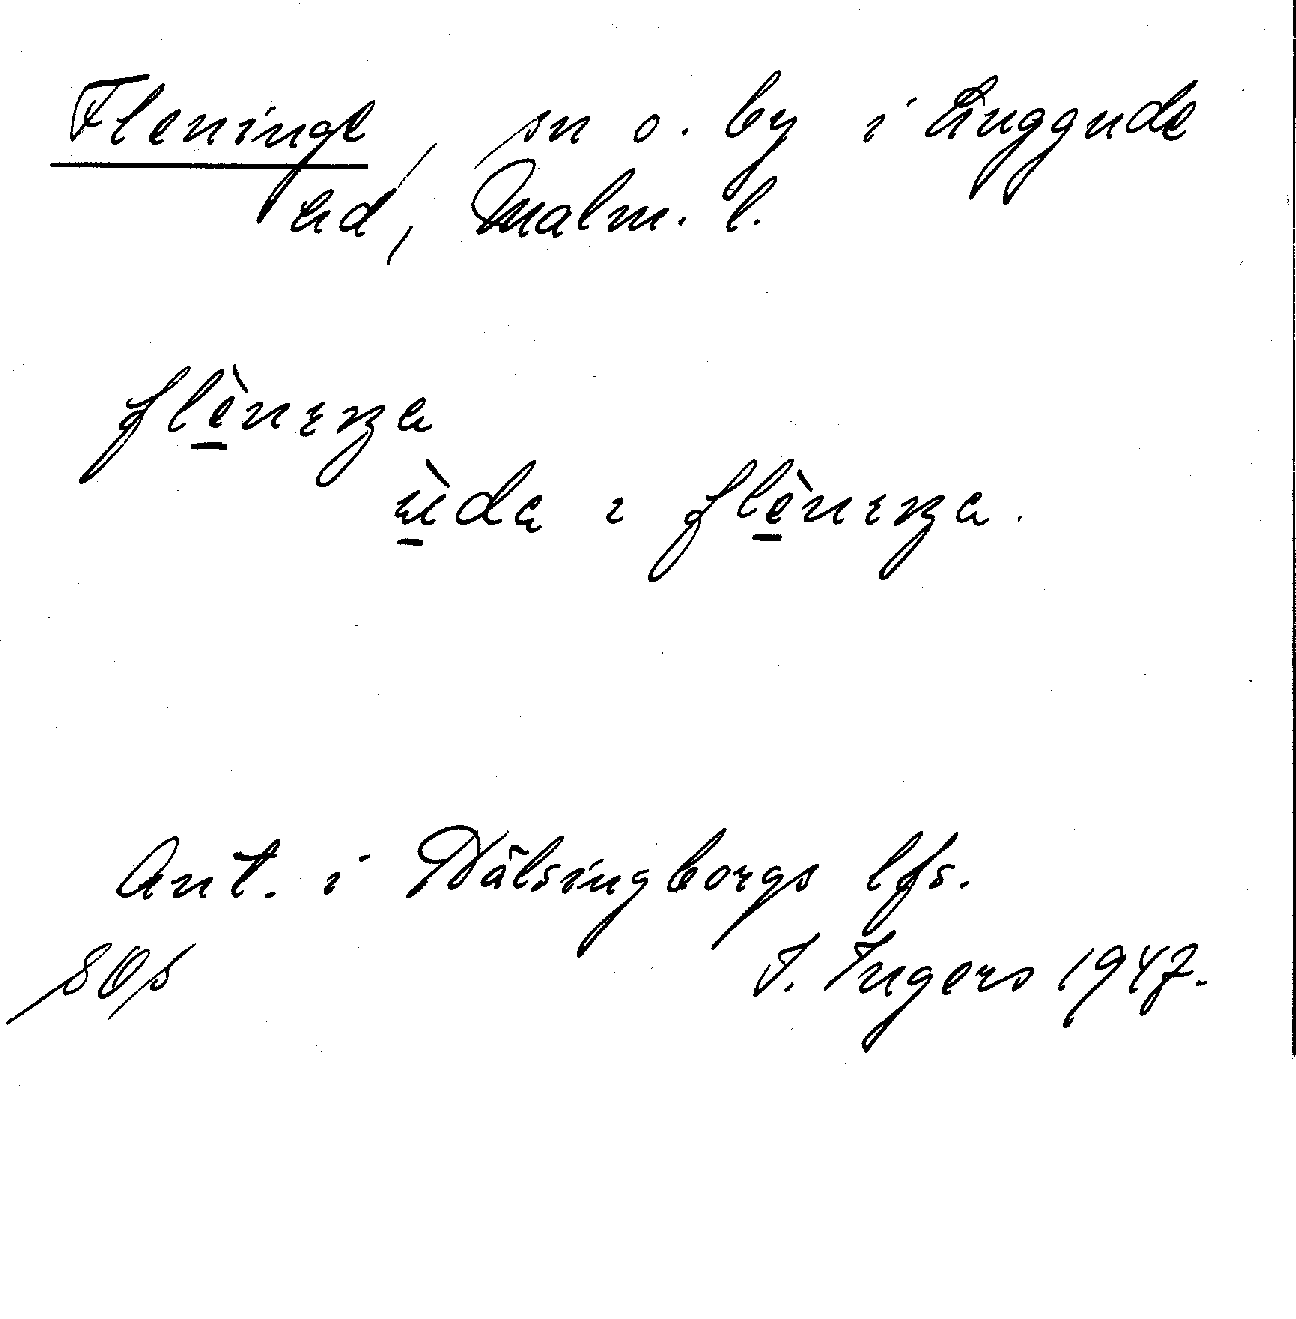 Fleninge, sn o. by i Luggude
hd, Malm. l.
flènıŋa
ùdə ı flènıŋa.
Ant. i Hälsingborgs lfs.
I. Ingers 1947.